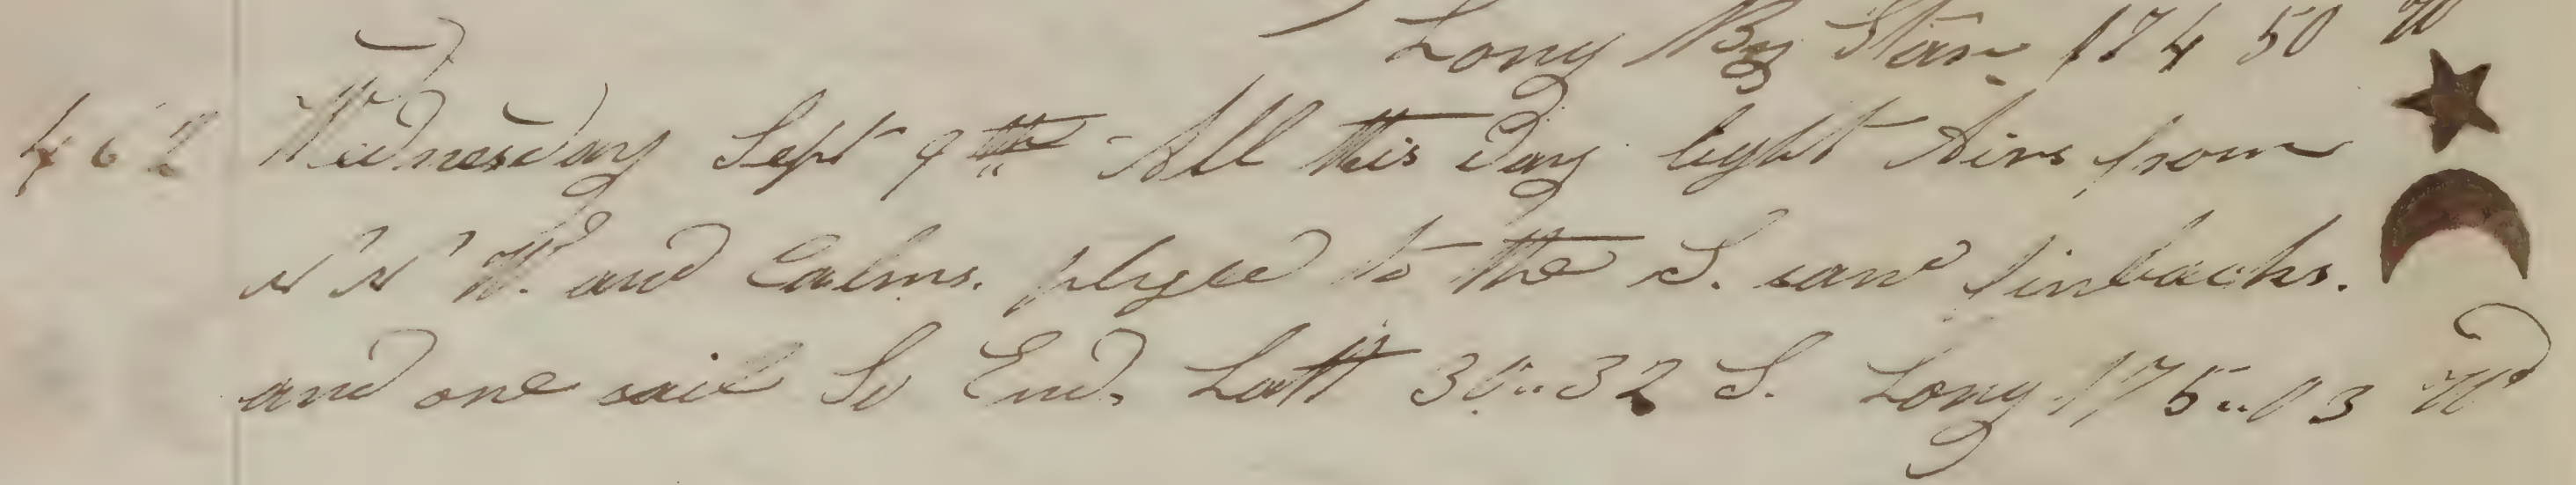 Long By Star 174 50 W
462 Wednesday Sept 9th All this Day light Airs from
N N W. and Calms. plyed to the S. saw finbacks.
and one sail So End. Latt 30..32 S. Long. 175..03 W